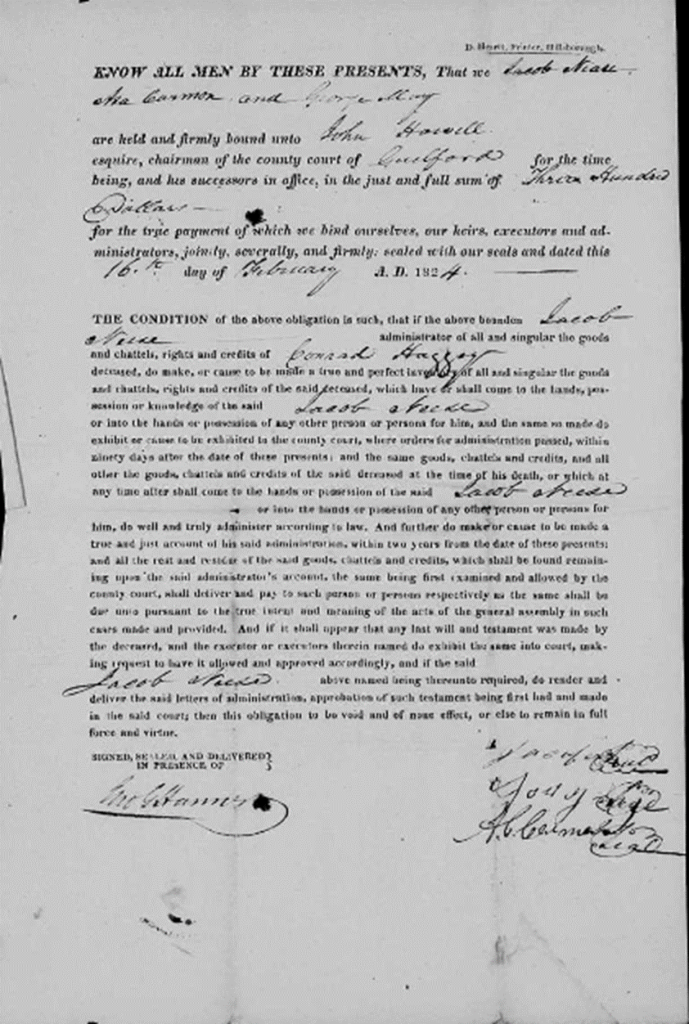 D. Heartt, Printer, Hillsborough.
KNOW ALL MEN BY THESE PRESENTS, That we Jacob Nease
Asa Carmon and George May
are held and firmly bound unto John Howell
esquire, chairman of the county court of Guilford for the time
being, and his successors in office, in the just and full sum of Three Hundred
Dollars
for the true payment of which we bind ourselves, our heirs, executors and ad-
ministrators, jointly, severally, and firmly: sealed with our seals and dated this
16.th day of February A. D. 1824.
THE CONDITION of the above obligation is such, that if the above bounden Jacob
Neese administrator of all and singular the goods
and chattels, rights and credits of Conrad
deceased, do make, or cause to be made a true and perfect inventory of all and singular the goods
and chattels, rights and credits of the said deceased, which have or shall come to the hands, pos-
session or knowledge of the said Jacob Neese
or into the hands or possession of any other person or persons for him, and the same so made do
exhibit or cause to be exhibited to the county court, where orders for administration passed, within
ninety days after the date of these presents; and the same goods, chattels and credits, and all
other the goods, chattels and credits of the said deceased at the time of his death, or which at
any time after shall come to the hands or possession of the said Jacob Neese
or into the hands or possession of any other person or persons for
him, do well and truly administer according to law. And further do make or cause to be made a
true and just account of his said administration, within two years from the date of these presents;
and all the rest and residue of the said goods, chattels and credits, which shall be found remain-
ing upon the said administrator's account, the same being first examined and allowed by the
county court, shall deliver and pay to such person or persons respectively as the same shall be
due unto pursuant to the true intent and meaning of the acts of the general assembly in such
cases made and provided. And if it shall appear that any last will and testament was made by
the deceased, and the executor or executors therein named do exhibit the same into court, mak-
ing request to have it allowed and approved accordingly, and if the said
Jacob Neese above named being thereunto required, do render and
deliver the said letters of administration, approbation of such testament being first had and made
in the said court; then this obligation to be void and of none effect, or else to remain in full
force and virtue.
SIGNED, SEALED AND DELIVERED
IN PRESENCE OF
Seal
Seal
Seal